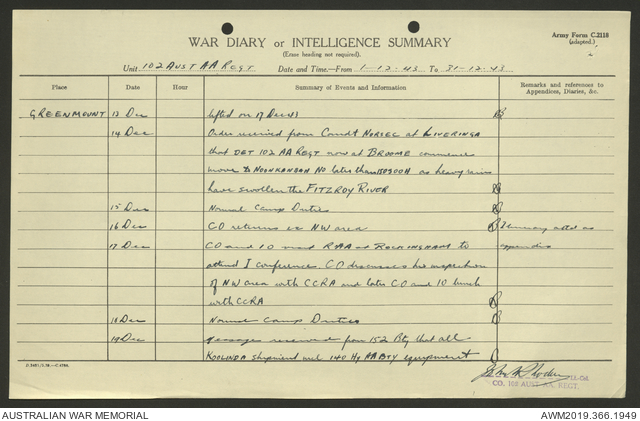 WAR DIARY or INTELLIGENCE SUMMARY
Army Form C.2118
(adapted.)
(Erase heading not required).
2
Unit 102 AUST AA REGT Date and Time—From 1-12-43 To 31-12-43
Place Date Hour Summary of Events and Information Remarks and references to Appendices, Diaries, &c.
GREENMOUNT 13 Dec lifted on 17 Dec 43
14 Dec Order received from Comdt NORSEC at LIVERINGA
that DET 102 AA REGT now at BROOME commences
move to NOONKANBAH No later than as heavy rains
have swollen the FITZROY RIVER
15 Dec Normal Camp Duties
16 Dec CO returns ex NW area Itinerary attd as
17 Dec CO and IO visit RAA at ROCKINGHAM to appendix
attend I conference. CO discusses his inspection
of NW area with CCRA and later CO and IO lunch
with CCRA
18 Dec Normal Camp Duties
19 Dec Message received from 152 Bty that all
KOOLINDA shipment incl 140 Hy AA BTY equipment
Lt-Col
CO. 102 AUST AA. REGT.
AUSTRALIAN WAR MEMORIAL
AWM2019.366.1949